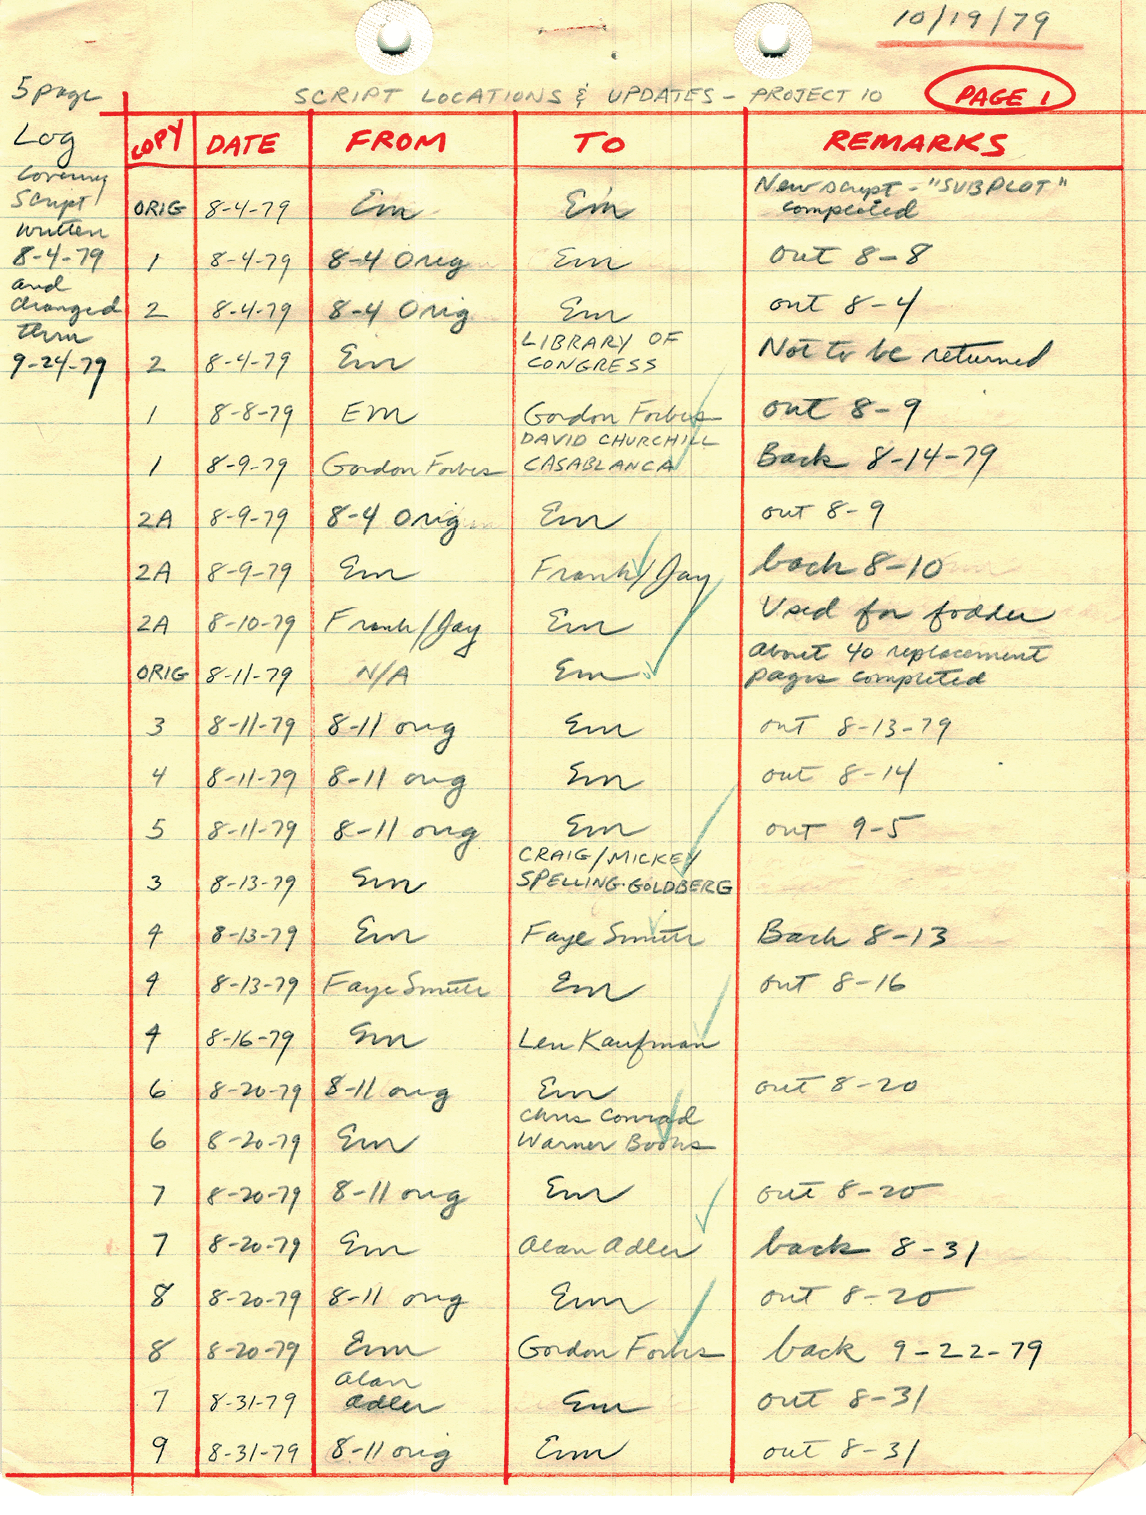 10/19/79
SCRIPT LOCATIONS & UPDATES - PROJECT 10 PAGE 1
5 page
Log
Covering
Script
written
8-4-79
and
changed
thru
9-24-79
COPY DATE FROM TO REMARKS
ORIG 8-4-79 Em Em New script - "SUBPLOT" completed
1 8-4-79 8-4 Orig Em out 8-8
2 8-4-79 8-4 Orig Em out 8-4
2 8-4-79 Em LIBRARY OF CONGRESS Not to be returned
1 8-8-79 Em Gordon Forbes out 8-9
1 8-9-79 Gordon Forbes DAVID CHURCHILL CASABLANCA Back 8-14-79
2A 8-9-79 8-4 Orig Em out 8-9
2A 8-9-79 Em Frank/Jay back 8-10
2A 8-10-79 Frank/Jay Em Used for fodder
ORIG 8-11-79 N/A Em About 40 replacement pages completed
3 8-11-79 8-11 orig Em out 8-13-79
4 8-11-79 8-11 orig Em out 8-14
5 8-11-79 8-11 orig Em out 9-5
3 8-13-79 Em CRAIG/MICKEY SPELLING-GOLDBERG
4 8-13-79 Em Faye Smith Back 8-13
4 8-13-79 Faye Smith Em out 8-16
4 8-16-79 Em Len Kaufman
6 8-20-79 8-11 orig Em out 8-20
6 8-20-79 Em Chris Conrad Warner Books
7 8-20-79 8-11 orig Em out 8-20
7 8-20-79 Em Alan Adler back 8-31
8 8-20-79 8-11 orig Em out 8-20
8 8-20-79 Em Gordon Forbes back 9-22-79
7 8-31-79 Alan Adler Em out 8-31
9 8-31-79 8-11 orig Em out 8-31